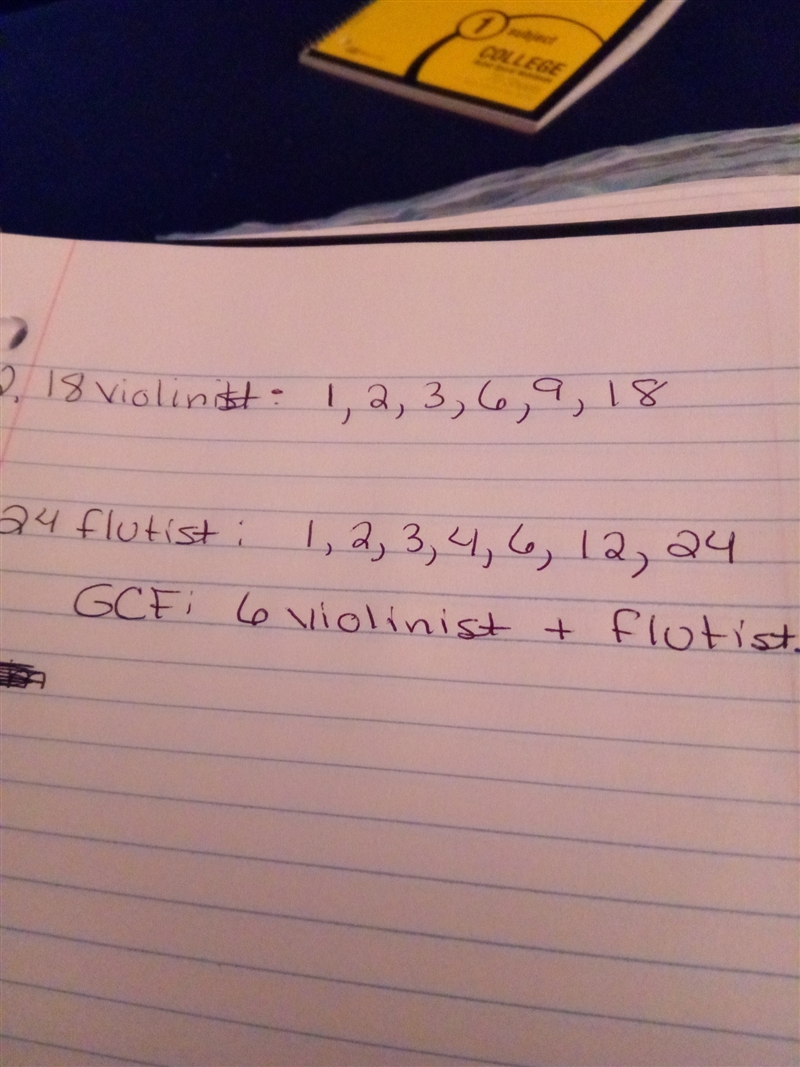 1 subject
COLLEGE
18 violinist:  1, 2, 3, 6, 9, 18
24 flutist:  1, 2, 3, 4, 6, 12, 24
GCF: 6 violinist + flutist.